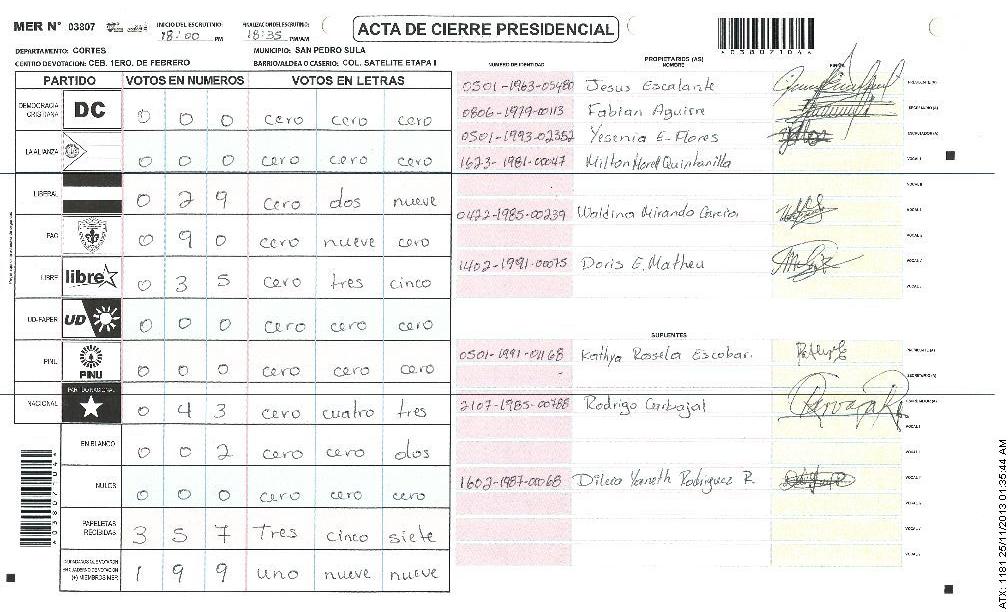 MER N° 03807 INICIO DEL ESCRUTINIO: 18:00 PM FINALIZACION ESCRUTINIO: 18:35 PM/AM ACTA DE CIERRE PRESIDENCIAL
DEPARTAMENTO: CORTES MUNICIPIO: SAN PEDRO SULA
CENTRO DE VOTACION: CEB. 1ERO. DE FEBRERO BARRIO/ALDEA O CASERIO: COL. SATELITE ETAPA I
PARTIDO VOTOS EN NUMEROS VOTOS EN LETRAS
DEMOCRACIA CRISTIANA DC 0 0 0 cero cero cero
LA ALIANZA 0 0 0 cero cero cero
LIBERAL 0 2 9 cero dos nueve
PAC 0 9 0 cero nueve cero
LIBRE libre 0 3 5 cero tres cinco
UD-FAPER UD 0 0 0 cero cero cero
PINU PINU 0 0 0 cero cero cero
NACIONAL PARTIDO NACIONAL 0 4 3 cero cuatro tres
EN BLANCO 0 0 2 cero cero dos
NULOS 0 0 0 cero cero cero
PAPELETAS RECIBIDAS 3 5 7 Tres cinco siete
CIUDADANOS QUE VOTARON (+) MIEMBROS MER 1 9 9 uno nueve nueve
03807104
PROPIETARIOS (AS)
NUMERO DE IDENTIDAD NOMBRE FIRMA
0501-1963-05480 Jesus Escalante PRESIDENTE (A)
0806-1979-00113 Fabian Aguirre SECRETARIO (A)
0501-1993-02352 Yesenia E. Flores ESCRUTADOR (A)
1623-1981-00047 Milton Morel Quintanilla VOCAL I
VOCAL II
0422-1985-00239 Waldina Mirando Garcia
1402-1991-00075 Doris E. Matheu
SUPLENTES
0501-1991-01168 Kathya Rossela Escobar.
SECRETARIO (A)
2107-1985-00788 Rodrigo Carbajal ESCRUTADOR (A)
VOCAL I
1602-1987-00068 Yaneth Rodriguez R.
03807104
ATX: 1181 25/11/2013 01:35:44 AM